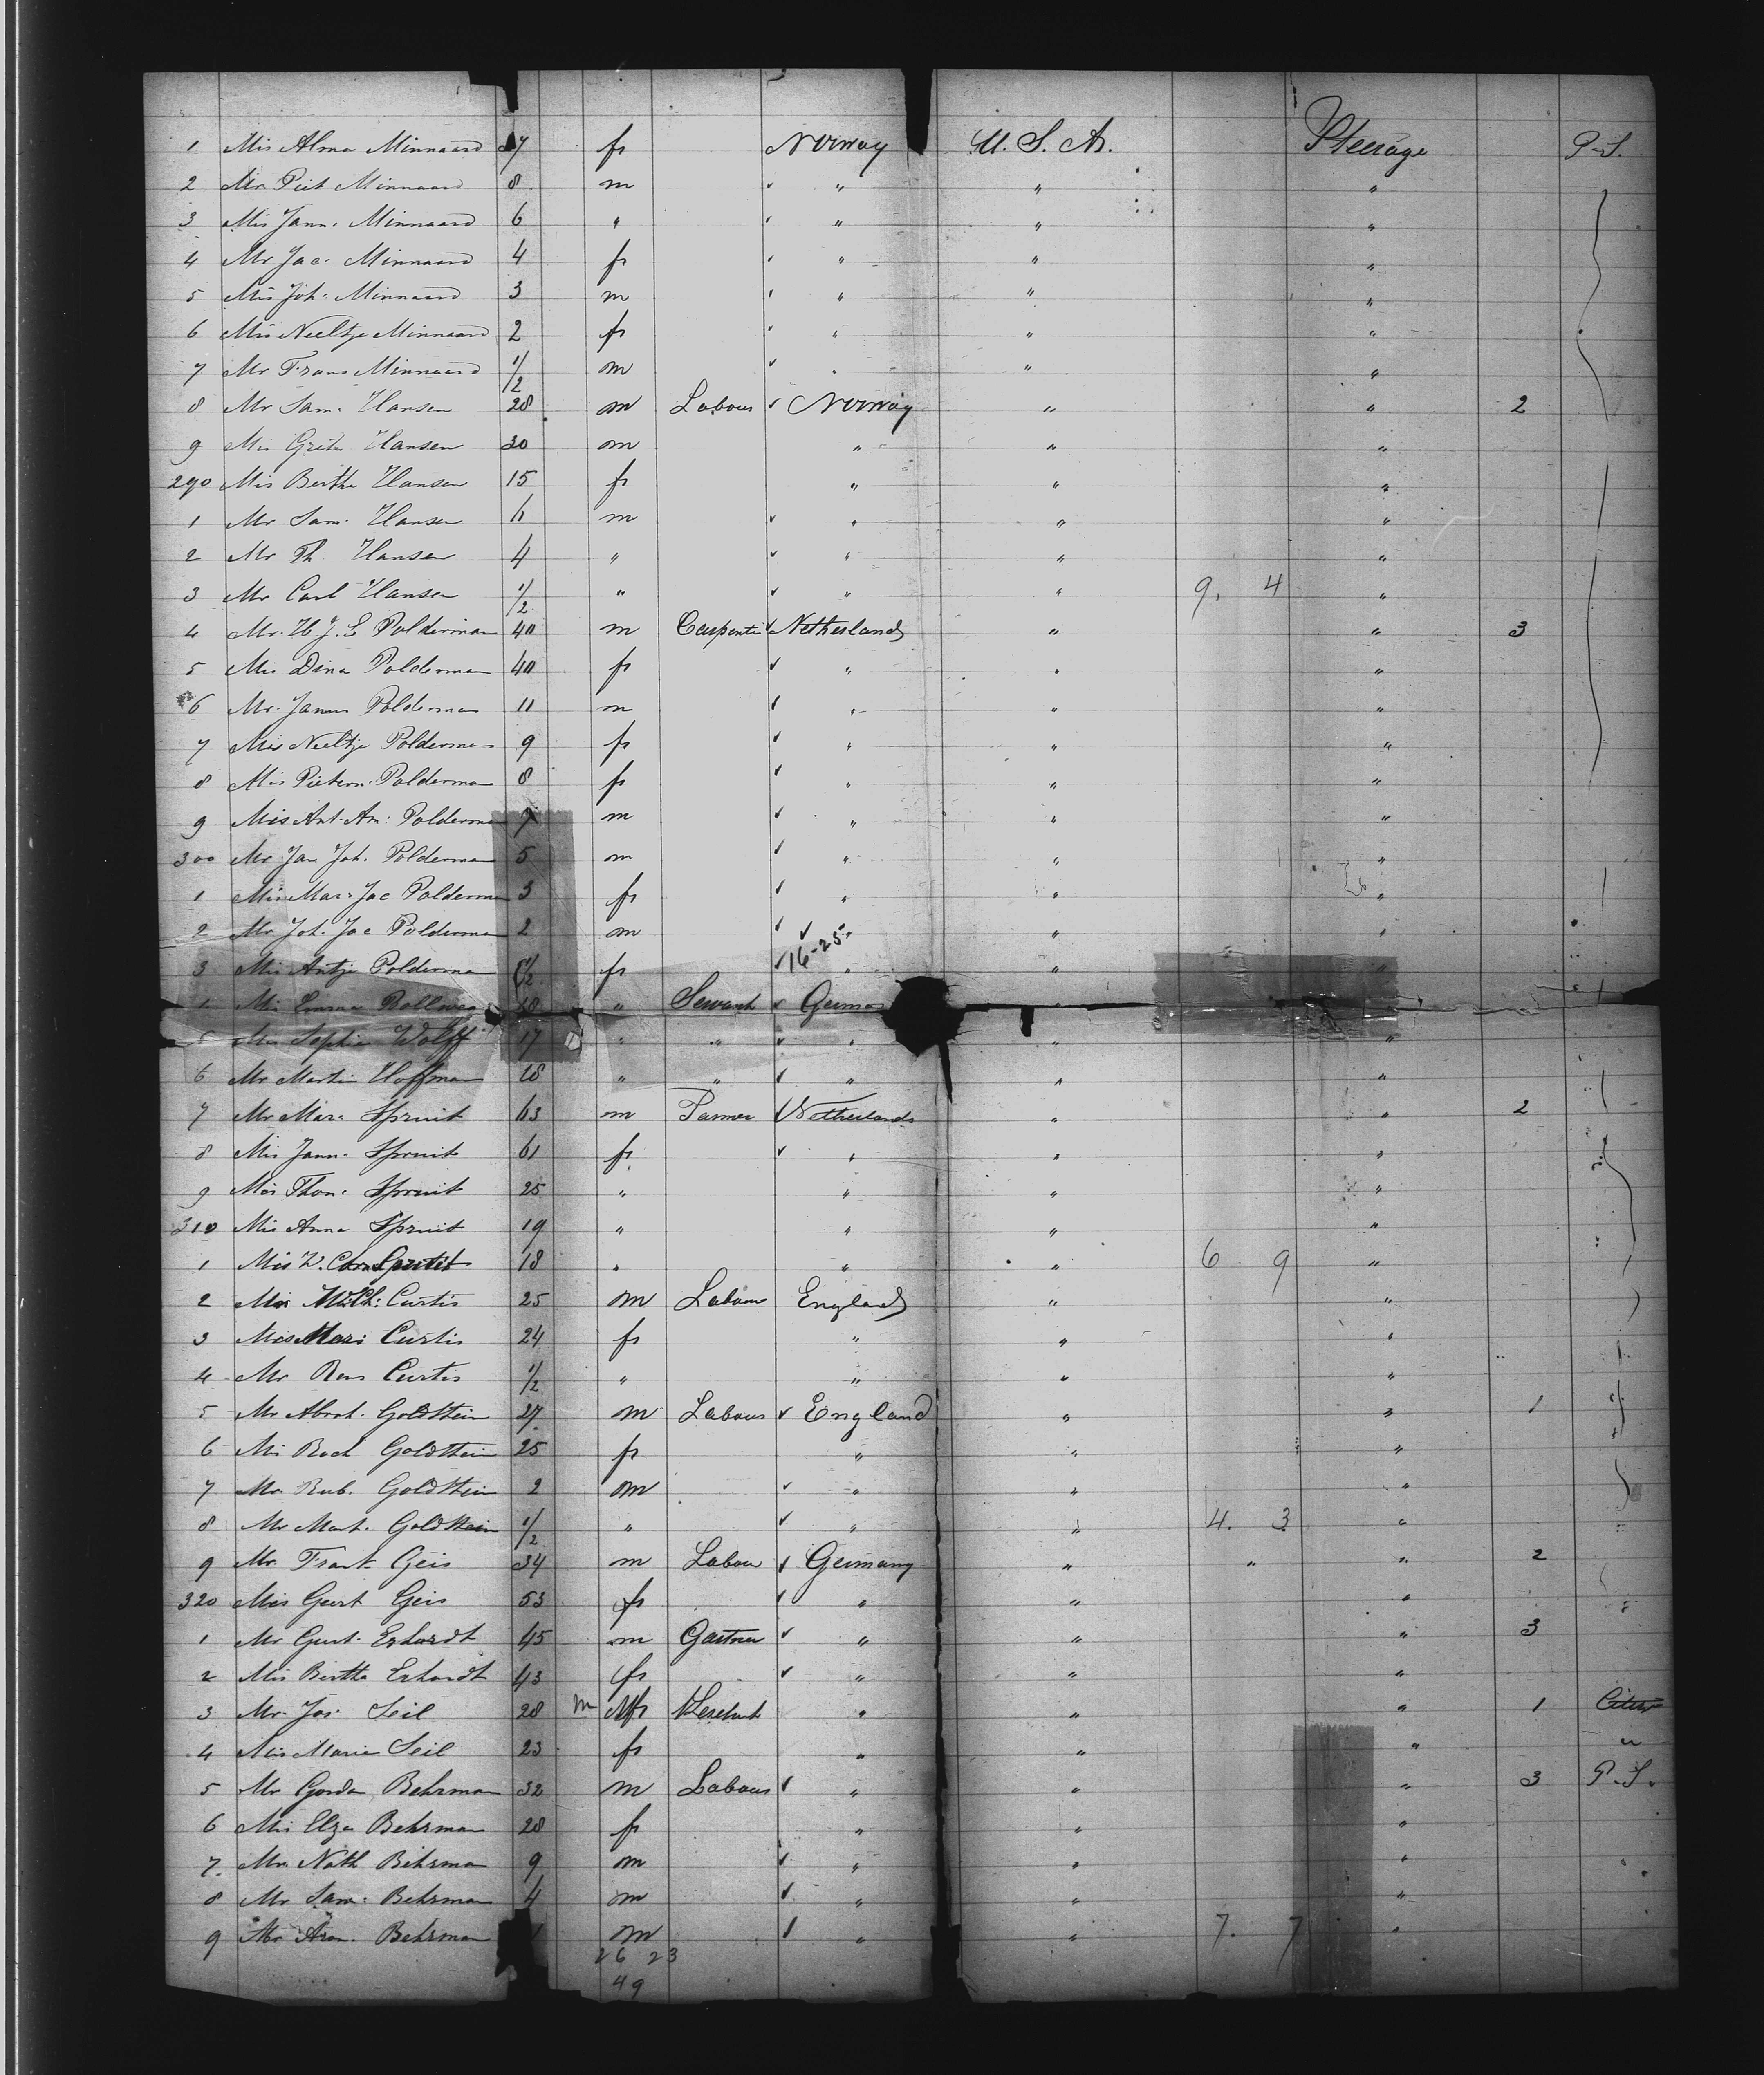 1 Mis Alma Minnaard 27 fr Norway U. S. A. Steerage P.S.
2 Mr Piet Minnaard 8 m " " "
3 Mis Jann. Minnaard 6 " " " "
4 Mr Jac. Minnaard 4 fr " " "
5 Mis Joh. Minnaard 3 m " " "
6 Mis Neeltje Minnaard 2 fr " " "
7 Mr Frans Minnaard 1/2 m " " "
8 Mr Sam. Hansen 28 m Labour Norway " " 2
9 Mis Grete Hansen 30 m " " "
290 Mis Bertha Hansen 15 fr " " "
1 Mr Sam. Hansen 6 m " " "
2 Mr Th Hansen 4 " " " "
3 Mr Carl Hansen 1/2 " " " 9. 4 "
4 Mr. H J. L Polderman 40 m Carpenter Netherlands " " 3
5 Mis Dina Polderman 40 fr " " "
6 Mr. Janus Polderman 11 m " " "
7 Mis Neeltje Polderman 9 fr " " "
8 Mis Pietern. Polderman 8 fr " " "
9 Mis Ant. An: Polderman 7 m " " "
300 Mr Jan Joh. Polderman 5 m " " "
1 Mis Mar. Jac Polderman 3 fr " " "
2 Mr Joh. Jac Polderman 2 m " " "
16-25
3 Mis Antje Polderman 1/2 fr " " "
4 Mis Emma 18 " Servant German "
5 Mis Sophie Wolff 17 " " " " "
6 Mr Martin Hoffman 18 " " " " "
7 Mr Mar. Spruit 63 m Farmer Netherlands " " 2
8 Mis Jann. Spruit 61 fr " " "
9 Mis Thon. Spruit 25 " " " "
310 Mis Anna Spruit 19 " " " "
1 Mis W. Corn Spruit 18 " " " 6 9 "
2 Mr Mich: Curtis 25 m Labour England " "
3 Mis Mari Curtis 24 fr " " "
4 Mr Ben Curtis 1/2 " " " "
5 Mr Abrah. Goldstein 27 m Labour England " " 1
6 Mis Rach Goldstein 25 fr " " "
7 Mr Rub. Goldstein 2 m " " "
8 Mr Mart. Goldstein 1/2 " " " 4. 3 "
9 Mr. Frank Geis 34 m Labour Germany " " " 2
320 Mis Geert Geis 53 fr " " "
1 Mr Gust. Erhardt 45 m Gartner " " " 3
2 Mis Bertha Erhardt 43 fr " " "
3 Mr. Jos. Seil 28 m " " " 1
4 Mis Marie Seil 23 fr " " " "
5 Mr Gordon Behrman 32 m Labour " " " 3 P.S.
6 Mis Elza Behrman 28 fr " " "
7. Mr. Nath Behrman 9 m " " "
8 Mr Sam. Behrman 4 m " " "
9 Mr Aron. Behrman m " " 7. 7 "
26 23
49